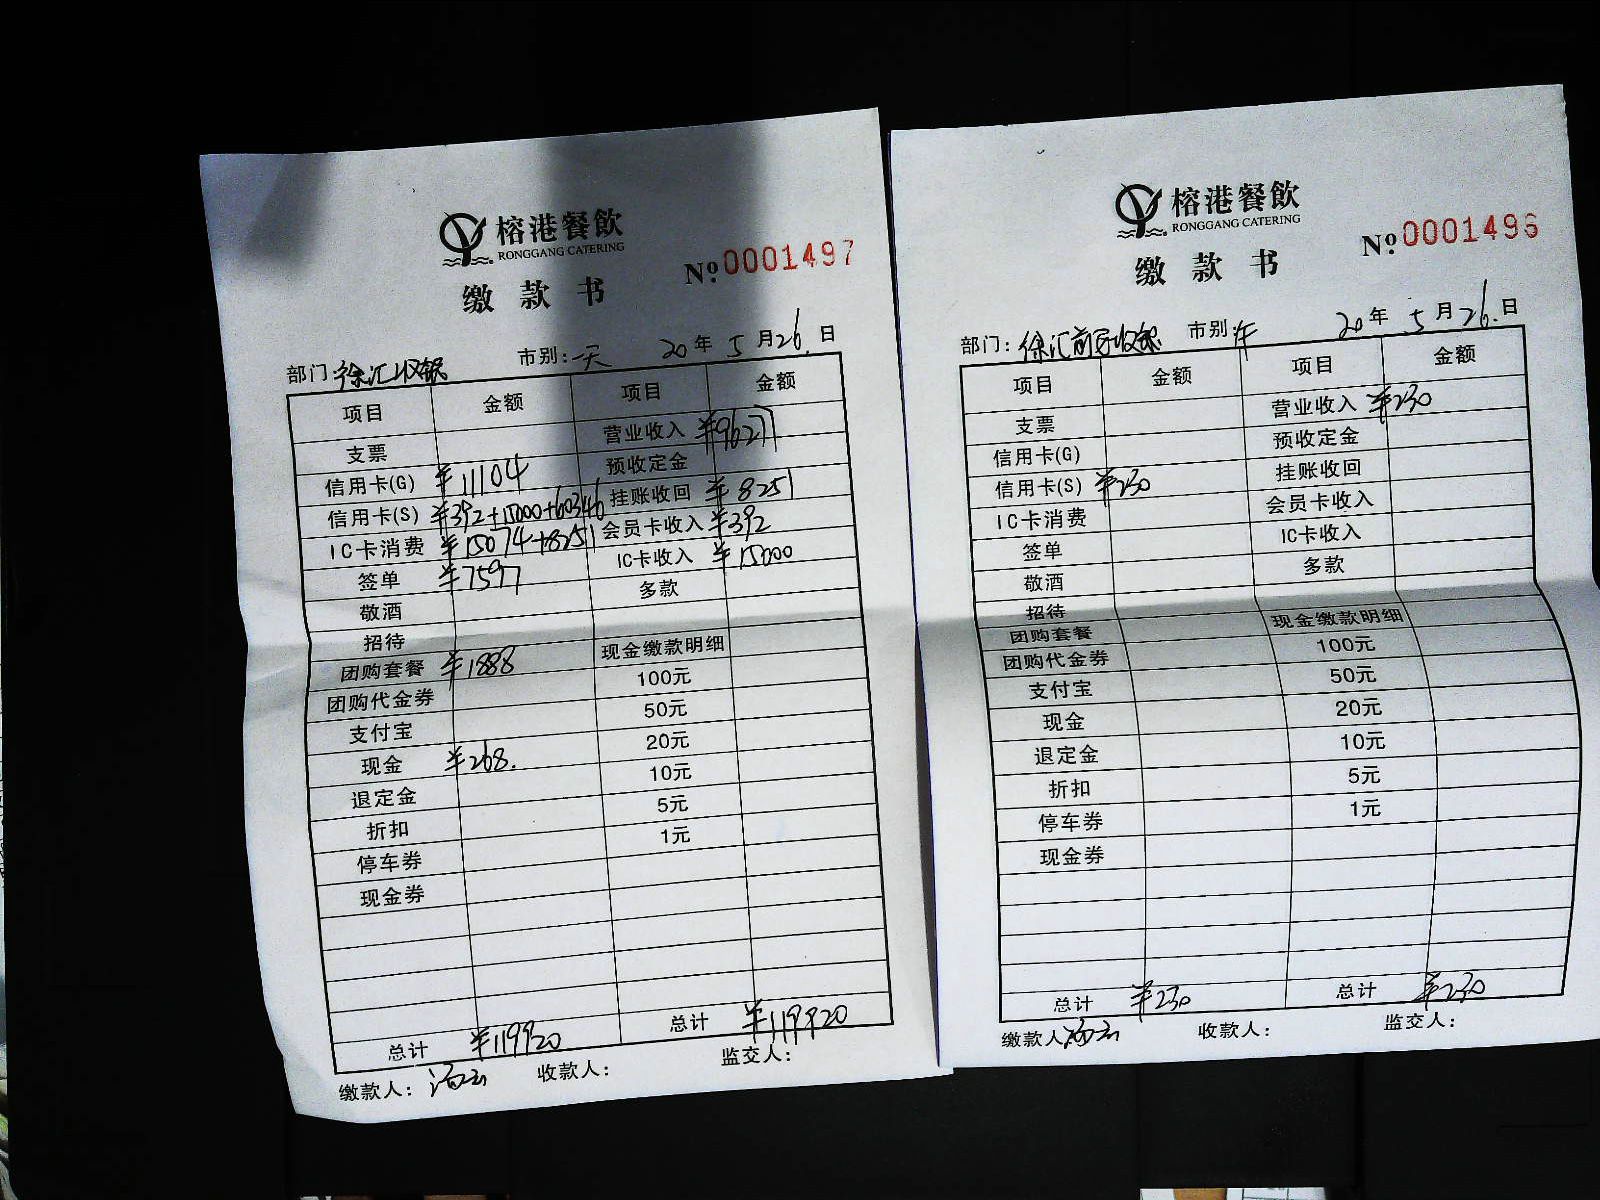 榕港餐飲
RONGGANG CATERING
缴款书
Nº 0001497
部门:徐汇收银 市别:一天 20年5月26日
项目 金额 项目 金额
支票 营业收入 ¥96277
信用卡(G) ¥11104 预收定金
信用卡(S) ¥392+15000+60346 挂账收回 ¥8251
IC卡消费 ¥15074+8251 会员卡收入 ¥392
签单 ¥7597 IC卡收入 ¥15000
敬酒 多款
招待
团购套餐 ¥1888 现金缴款明细
团购代金券 100元
支付宝 50元
现金 ¥268. 20元
退定金 10元
折扣 5元
停车券 1元
现金券
总计 ¥119920 总计 ¥119920
缴款人: 收款人: 监交人:
榕港餐飲
RONGGANG CATERING
缴款书
Nº 0001496
部门:徐汇前厅收银 市别:午 20年5月26日
项目 金额 项目 金额
支票 营业收入 ¥230
信用卡(G) 预收定金
信用卡(S) ¥230 挂账收回
IC卡消费 会员卡收入
签单 IC卡收入
敬酒 多款
招待
团购套餐 现金缴款明细
团购代金券 100元
支付宝 50元
现金 20元
退定金 10元
折扣 5元
停车券 1元
现金券
总计 ¥230 总计 ¥230
缴款人 收款人: 监交人: